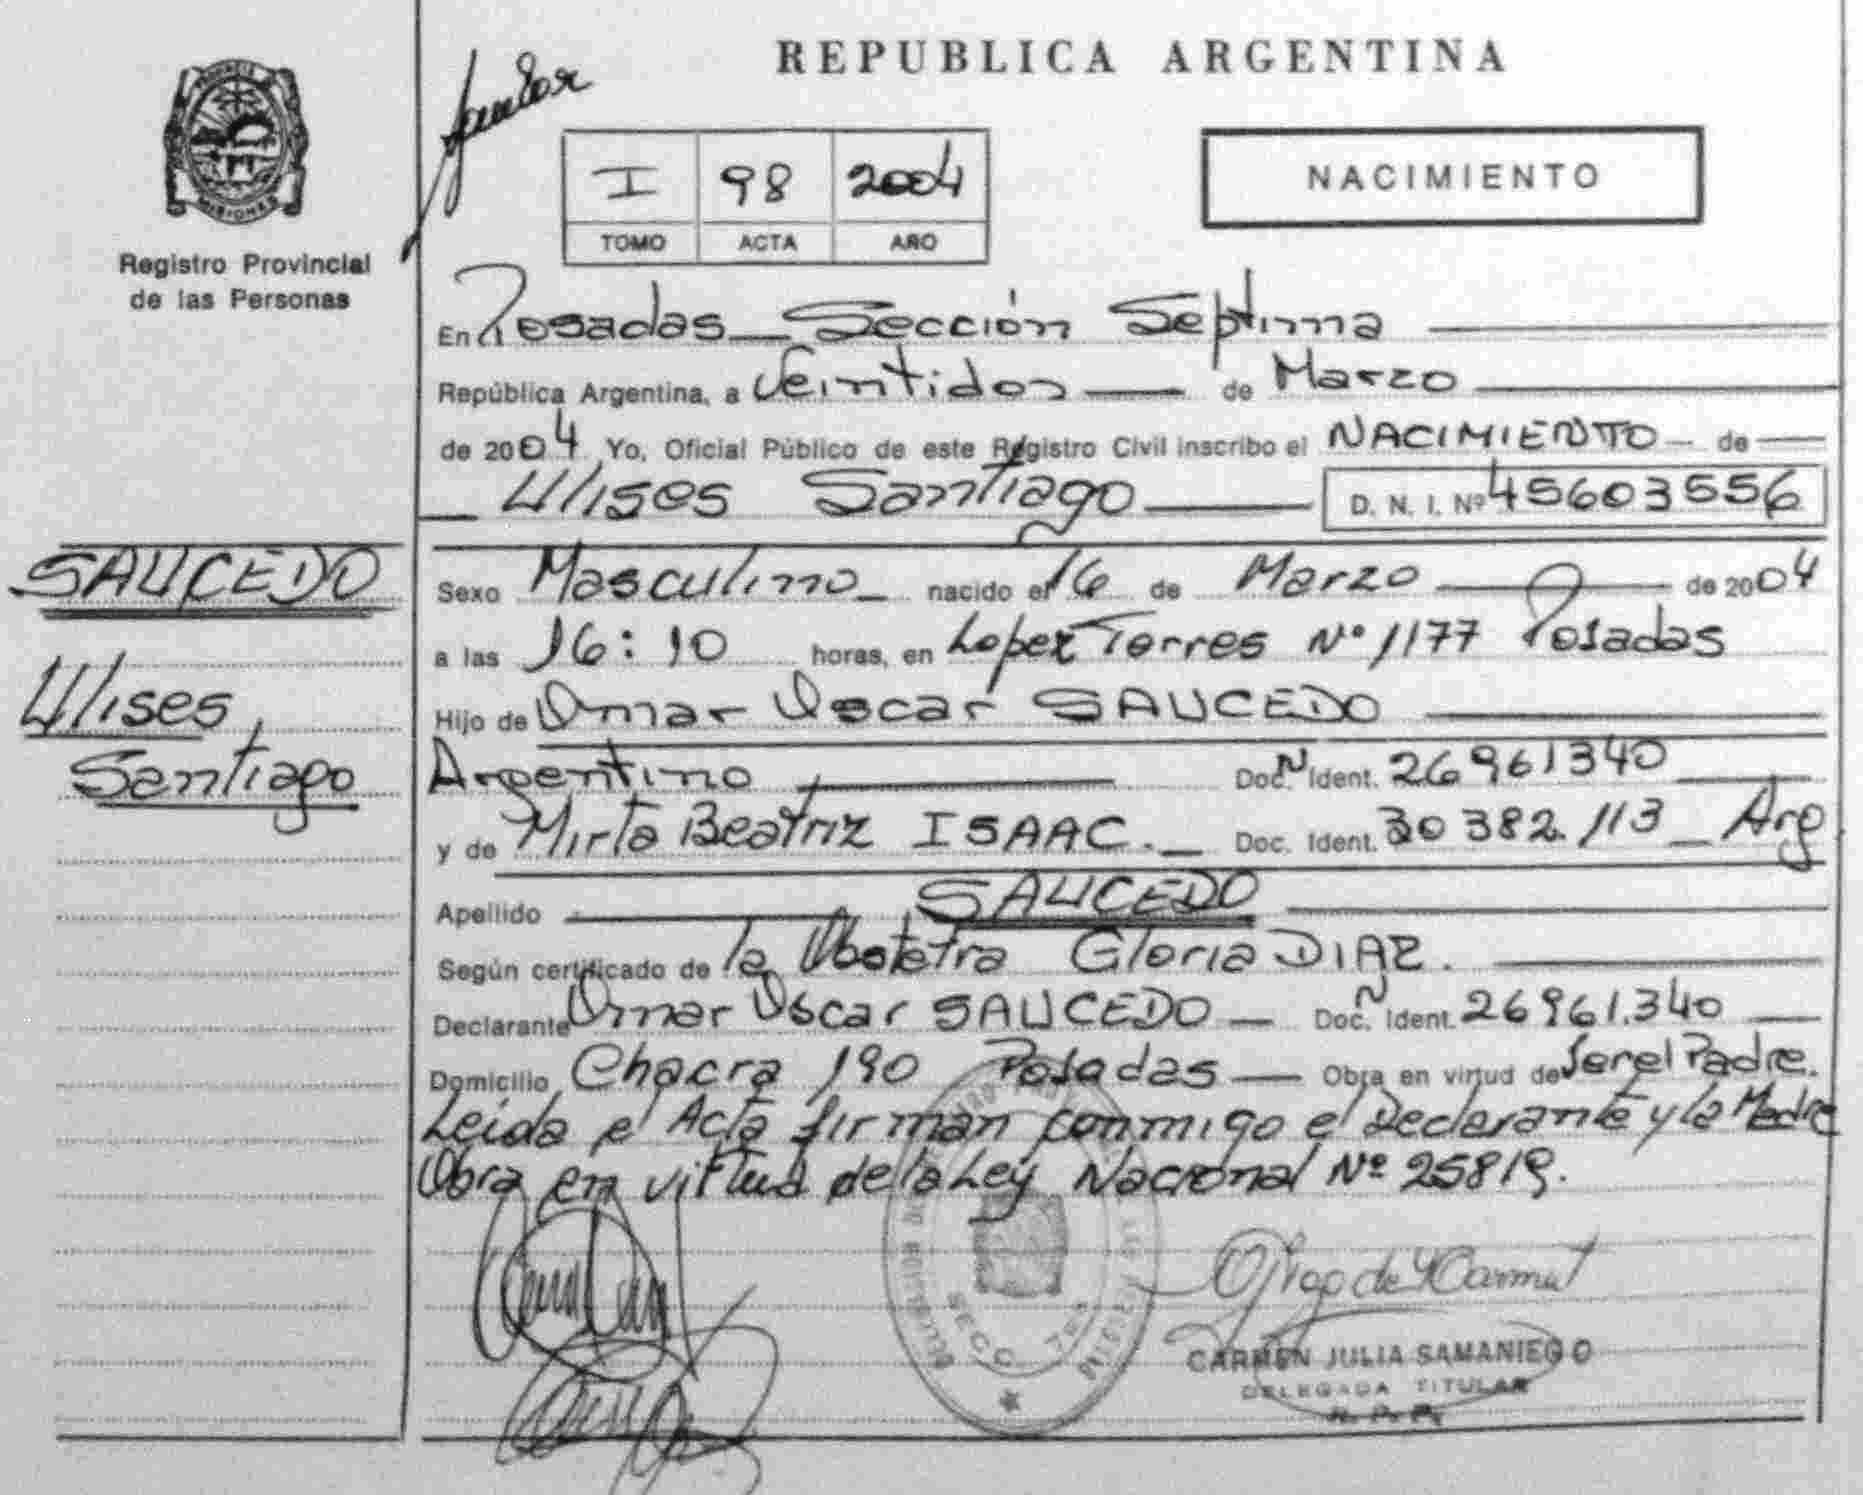 REPUBLICA ARGENTINA
MISIONES
Registro Provincial
de las Personas
I 98 2004
TOMO ACTA AÑO
NACIMIENTO
En Posadas Sección Septima
República Argentina, a Veintidos de Marzo
de 2004 Yo, Oficial Público de este Registro Civil inscribo el NACIMIENTO de
Ulises Santiago D. N. I. Nº 45603556
SAUCEDO
Ulises
Santiago
Sexo Masculino nacido el 16 de Marzo de 2004
a las 16:10 horas, en Lopez Torres Nº 1177 Posadas
Hijo de Omar Oscar SAUCEDO
Argentino Doc. N Ident. 26961340
y de Mirta Beatriz ISAAC. Doc. Ident. 30382.113 Arg
Apellido SAUCEDO
Según certificado de la Obstetra Gloria DIAZ.
Declarante Omar Oscar SAUCEDO Doc. N Ident. 26961.340
Domicilio Chacra 190 Posadas Obra en virtud de Ser el Padre.
Leida el Acta firman conmigo el Declarante y la Madre
Obra en virtud de la Ley Nacional Nº 25819.
SECC. 7ma
CARMEN JULIA SAMANIEGO
DELEGADA TITULAR
R. P. P.